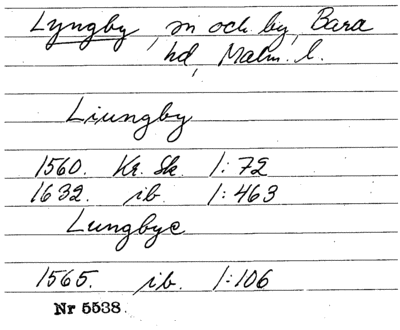 Lyngby, sn och by, Bara
hd, Malm. l.
Liungby
1560. Kr. Sk. 1:72
1632. ib. 1:463
Lungbye
1565. ib. 1:106
Nr 5538.